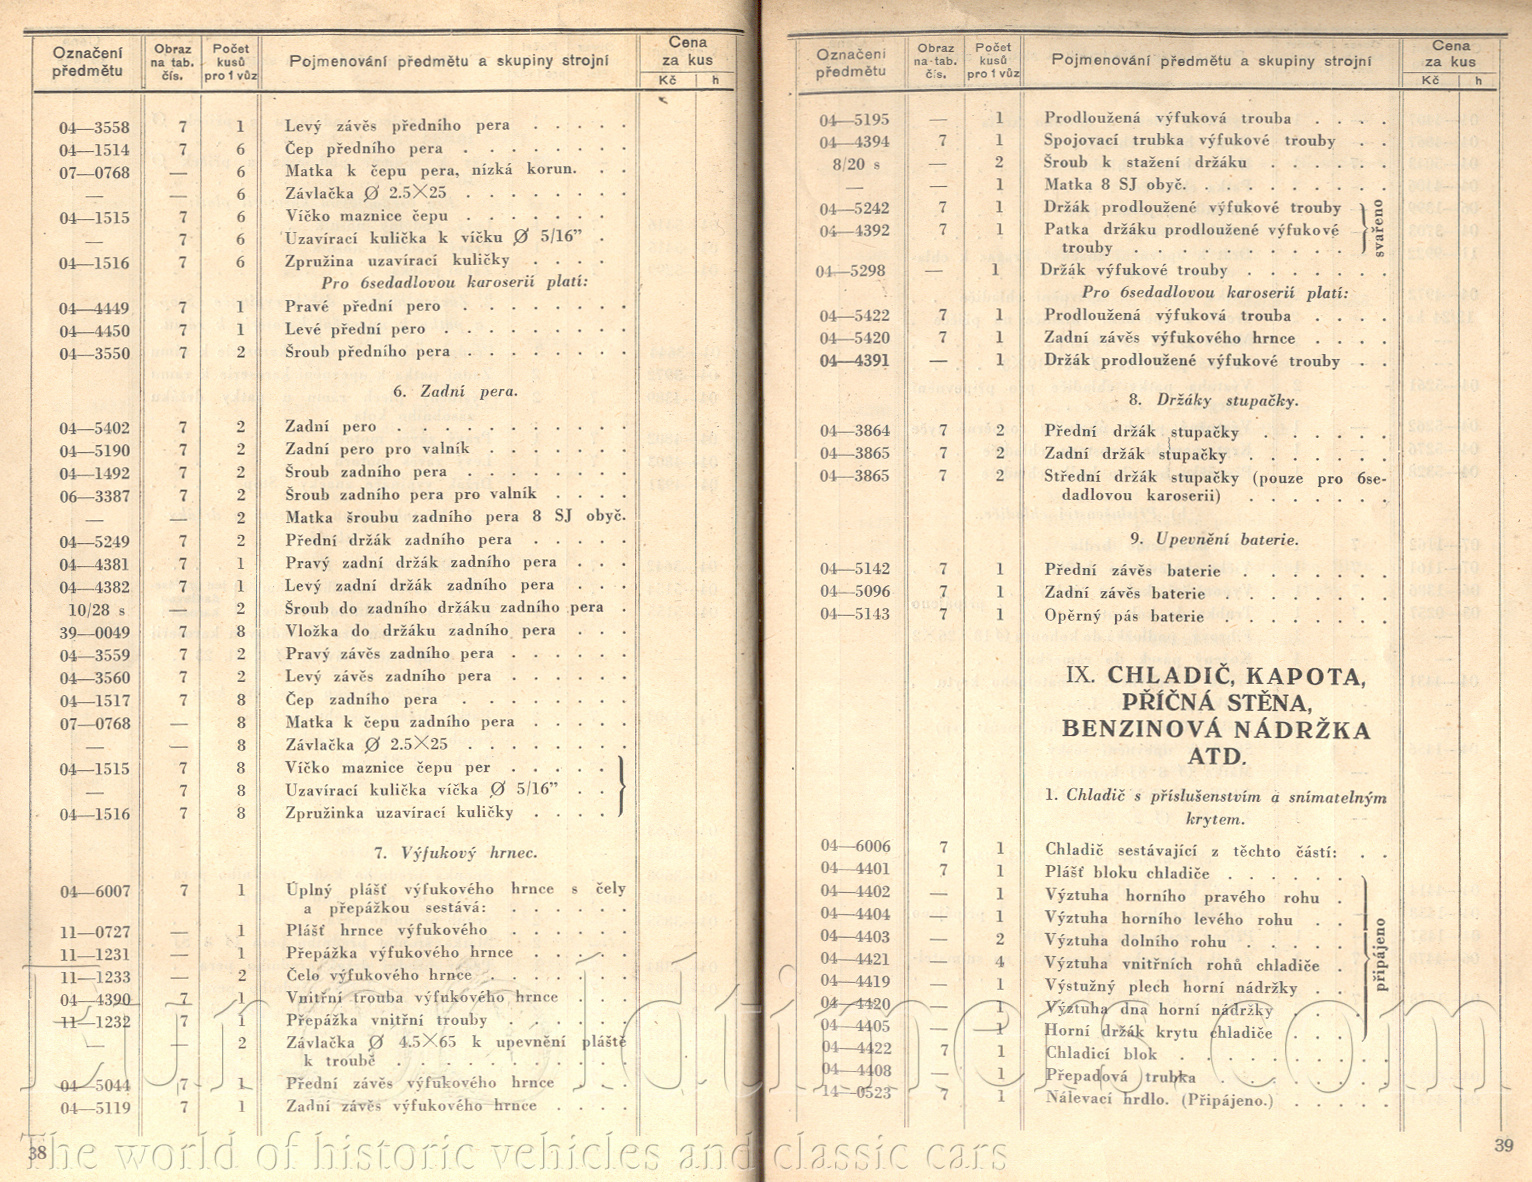 Označení předmětu | Obraz na tab. čís. | Počet kusů pro 1 vůz | Pojmenování předmětu a skupiny strojní | Cena za kus Kč h
04—3558 7 1 Levý závěs předního pera . . . . .
04—1514 7 6 Čep předního pera . . . . . . . .
07—0768 — 6 Matka k čepu pera, nízká korun. . .
— — 6 Závlačka Ø 2.5×25 . . . . . . . .
04—1515 7 6 Víčko maznice čepu . . . . . . .
— 7 6 Uzavírací kulička k víčku Ø 5/16” .
04—1516 7 6 Zpružina uzavírací kuličky . . . .
Pro 6sedadlovou karoserii platí:
04—4449 7 1 Pravé přední pero . . . . . . . .
04—4450 7 1 Levé přední pero . . . . . . . . .
04—3550 7 2 Šroub předního pera . . . . . . . .
6. Zadní pera.
04—5402 7 2 Zadní pero . . . . . . . . . . .
04—5190 7 2 Zadní pero pro valník . . . . . . .
04—1492 7 2 Šroub zadního pera . . . . . . . .
06—3387 7 2 Šroub zadního pera pro valník . . . .
— — 2 Matka šroubu zadního pera 8 SJ obyč.
04—5249 7 2 Přední držák zadního pera . . . . .
04—4381 7 1 Pravý zadní držák zadního pera . . .
04—4382 7 1 Levý zadní držák zadního pera . . .
10/28 s — 2 Šroub do zadního držáku zadního pera .
39—0049 7 8 Vložka do držáku zadního pera . . .
04—3559 7 2 Pravý závěs zadního pera . . . . . .
04—3560 7 2 Levý závěs zadního pera . . . . . .
04—1517 7 8 Čep zadního pera . . . . . . . .
07—0768 — 8 Matka k čepu zadního pera . . . . .
— — 8 Závlačka Ø 2.5×25 . . . . . . . .
04—1515 7 8 Víčko maznice čepu per . . . . .
— 7 8 Uzavírací kulička víčka Ø 5/16” . .
04—1516 7 8 Zpružinka uzavírací kuličky . . . .
7. Výfukový hrnec.
04—6007 7 1 Úplný plášť výfukového hrnce s čely
a přepážkou sestává: . . . . . .
11—0727 — 1 Plášť hrnce výfukového . . . . . .
11—1231 — 1 Přepážka výfukového hrnce . . . . .
11—1233 — 2 Čelo výfukového hrnce . . . . . . .
04—4390 7 1 Vnitřní trouba výfukového hrnce . . .
11—1232 7 1 Přepážka vnitřní trouby . . . . . .
— — 2 Závlačka Ø 4.5×65 k upevnění pláště
k troubě . . . . . . . . . . .
04—5044 7 1 Přední závěs výfukového hrnce . . .
04—5119 7 1 Zadní závěs výfukového hrnce . . . .
38
Označení předmětu | Obraz na tab. čís. | Počet kusů pro 1 vůz | Pojmenování předmětu a skupiny strojní | Cena za kus Kč h
04—5195 — 1 Prodloužená výfuková trouba . . . .
04—4394 7 1 Spojovací trubka výfukové trouby . .
8/20 s — 2 Šroub k stažení držáku . . . . . .
— — 1 Matka 8 SJ obyč. . . . . . . . . .
04—5242 7 1 Držák prodloužené výfukové trouby
04—4392 7 1 Patka držáku prodloužené výfukové
trouby . . . . . . . . . .
svařeno
04—5298 — 1 Držák výfukové trouby . . . . . . .
Pro 6sedadlovou karoserii platí:
04—5422 7 1 Prodloužená výfuková trouba . . . .
04—5420 7 1 Zadní závěs výfukového hrnce . . . .
04—4391 — 1 Držák prodloužené výfukové trouby . .
8. Držáky stupačky.
04—3864 7 2 Přední držák stupačky . . . . . .
04—3865 7 2 Zadní držák stupačky . . . . . . .
04—3865 7 2 Střední držák stupačky (pouze pro 6se-
dadlovou karoserii) . . . . . . .
9. Upevnění baterie.
04—5142 7 1 Přední závěs baterie . . . . . . .
04—5096 7 1 Zadní závěs baterie . . . . . . . .
04—5143 7 1 Opěrný pás baterie . . . . . . . .
IX. CHLADIČ, KAPOTA,
PŘÍČNÁ STĚNA,
BENZINOVÁ NÁDRŽKA
ATD.
1. Chladič s příslušenstvím a snímatelným
krytem.
04—6006 7 1 Chladič sestávající z těchto částí: . .
04—4401 7 1 Plášť bloku chladiče . . . . . .
04—4402 — 1 Výztuha horního pravého rohu .
04—4404 — 1 Výztuha horního levého rohu . .
04—4403 — 2 Výztuha dolního rohu . . . . .
04—4421 — 4 Výztuha vnitřních rohů chladiče .
04—4419 — 1 Výstužný plech horní nádržky . .
04—4420 — 1 Výztuha dna horní nádržky . . .
04—4405 — 1 Horní držák krytu chladiče . . .
připájeno
04—4422 7 1 Chladicí blok . . . . . . . . . .
04—4408 — 1 Přepadová trubka . . . . . . . .
14—0523 7 1 Nálevací hrdlo. (Připájeno.) . . . . .
39
The world of historic vehicles and classic cars